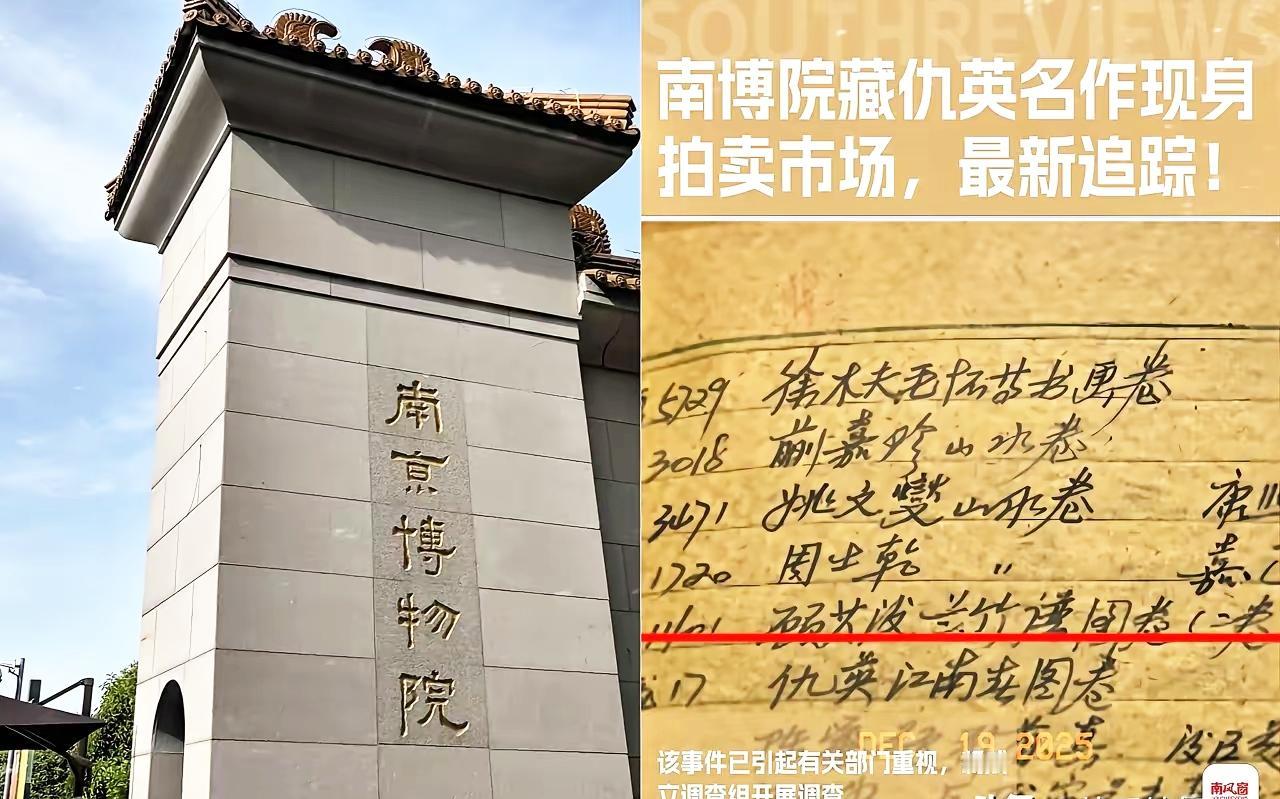 南京博物院
SOUTHREVIEWS
南博院藏仇英名作现身
拍卖市场，最新追踪！
5729 徐木夫毛怀芳书画卷
3018 蒯嘉珍山水卷
3471 姚文燮山水卷
1720 周生乾 〃 嘉
兰竹谱图卷
17 仇英江南春图卷
DEC 19 2025
该事件已引起有关部门重视，
立调查组开展调查
南风窗